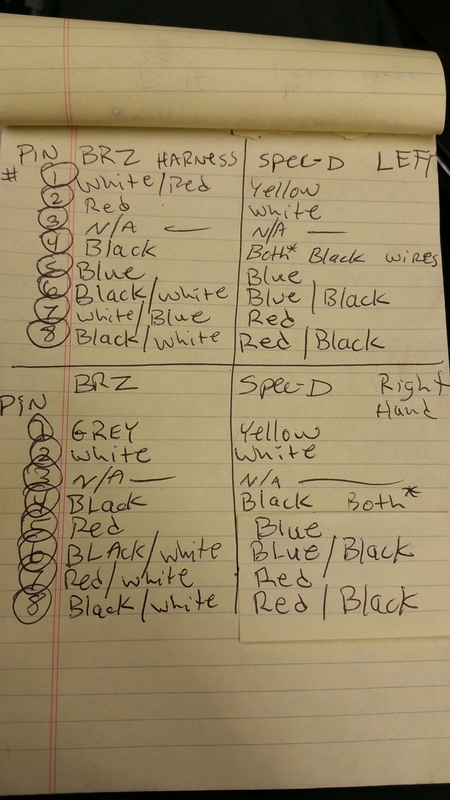 PiN BRZ HARNESS SPEC-D LEFT
# 1 White/Red Yellow
2 Red White
3 N/A — N/A —
4 Black Both* Black wires
5 Blue Blue
6 Black/White Blue/Black
7 White/Blue Red
8 Black/White Red/Black
BRZ SPEC-D Right
PiN Hand
1 GREY Yellow
2 White White
3 N/A — N/A —
4 BLack Black Both*
5 Red Blue
6 BLAck/White Blue/Black
7 Red/White Red
8 Black/White Red/Black